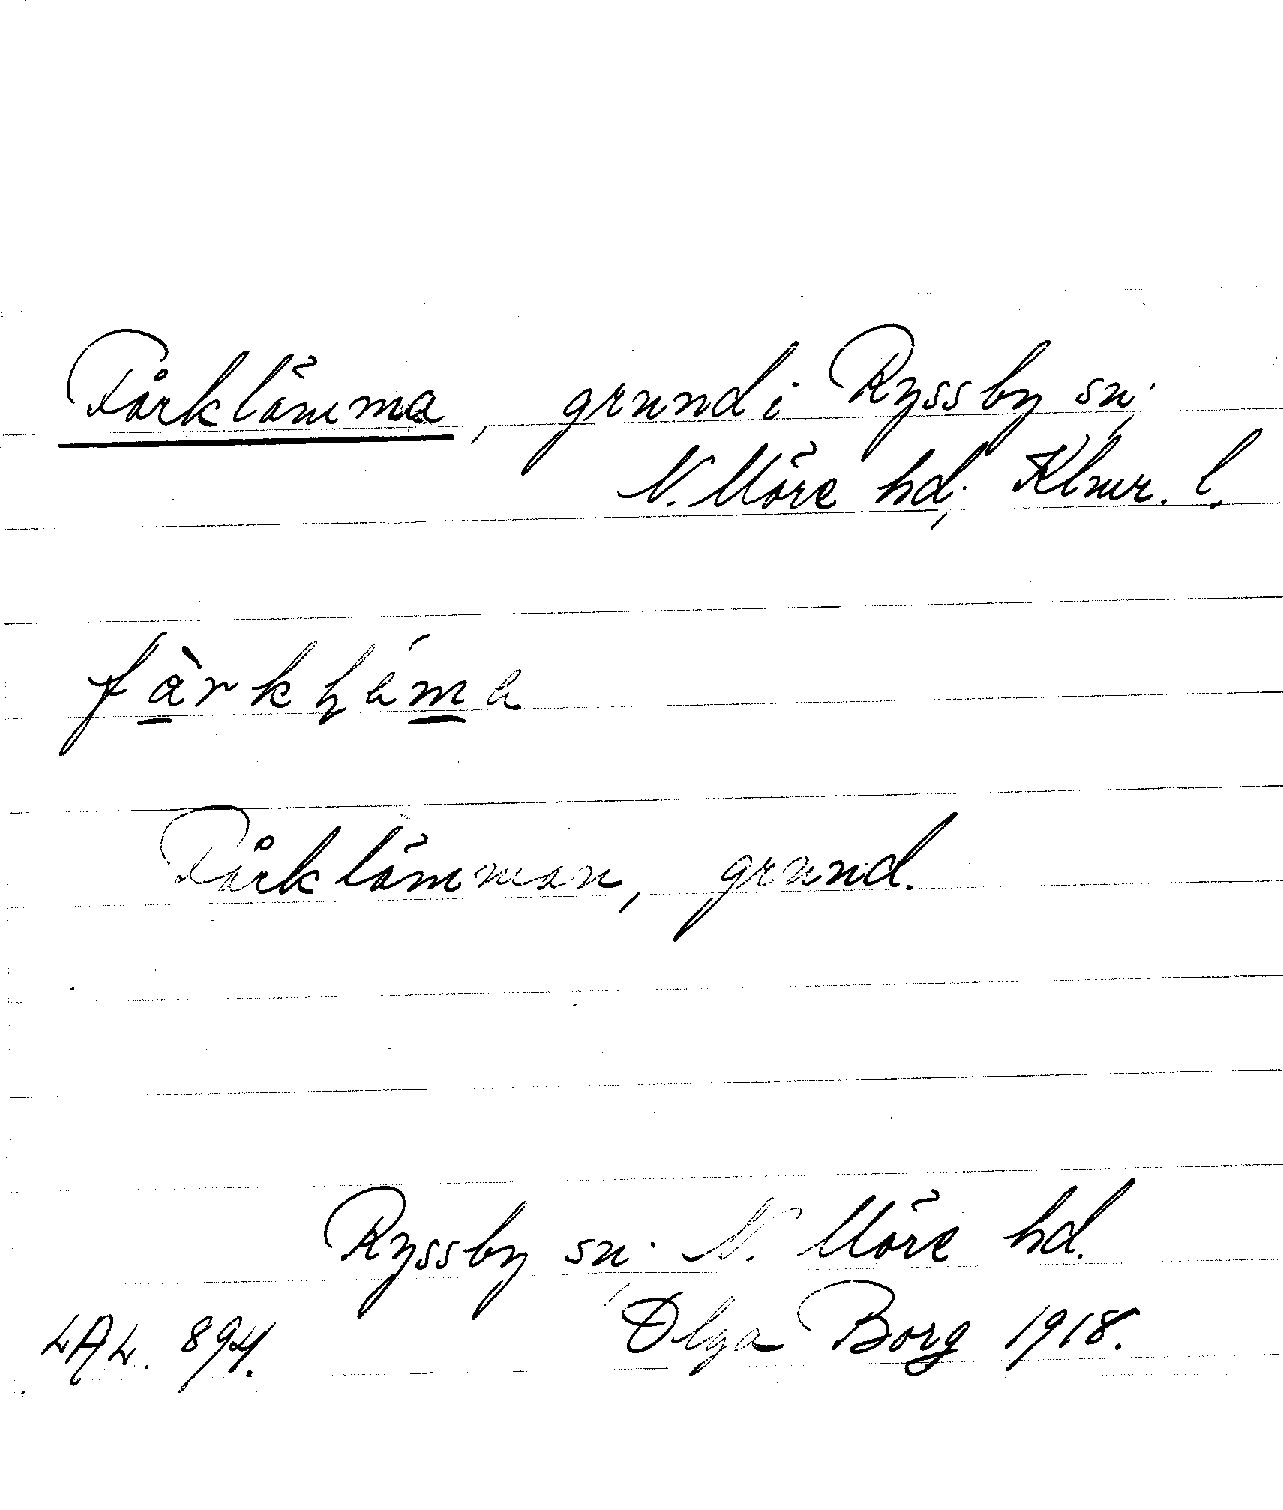 Fårklämma, grund i Ryssby sn;
N. Möre hd; Klmr. l.
Fårklämman, grund.
Ryssby sn; N. Möre hd.
LAL. 894. Olga Borg 1918.